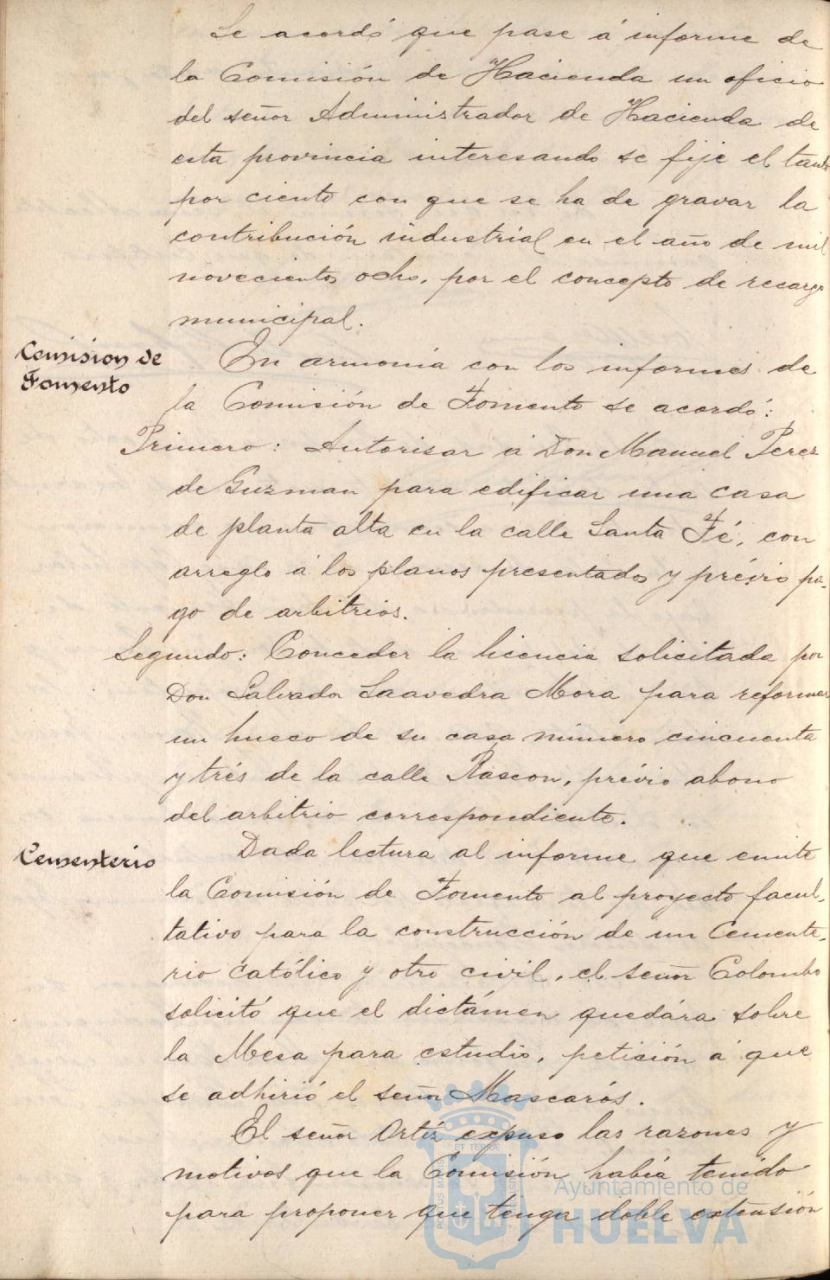 Se acordó que pase á informe de
la Comisión de Hacienda un oficio
del señor Administrador de Hacienda de
esta provincia interesando se fije el tanto
por ciento con que se ha de gravar la
contribución industrial en el año de mil
novecientos ocho, por el concepto de recargo
municipal.
Comision de
Fomento
En armonia con los informes de
la Comisión de Fomento se acordó:
Primero: Autorisar á Don Manuel Perez
de Guzman para edificar una casa
de planta alta en la calle Santa Fé, con
arreglo á los planos presentados y prévio pa-
go de arbitrios.
Segundo: Conceder la licencia solicitada por
Don Salvador Saavedra Mora para reformar
un hueco de su casa número cincuenta
y trés de la calle Rascon, prévio abono
del arbitrio correspondiente.
Cementerio
Dada lectura al informe que emite
la Comisión de Fomento al proyecto facul-
tativo para la construcción de un Cemente-
rio católico y otro civil, el señor Colombo
solicitó que el dictámen quedára sobre
la Mesa para estudio, petición á que
se adhirió el señor Mascarós.
El señor Ortiz expuso las razones y
motivos que la Comisión había tenido
para proponer que tenga doble extensión
Ayuntamiento de
HUELVA